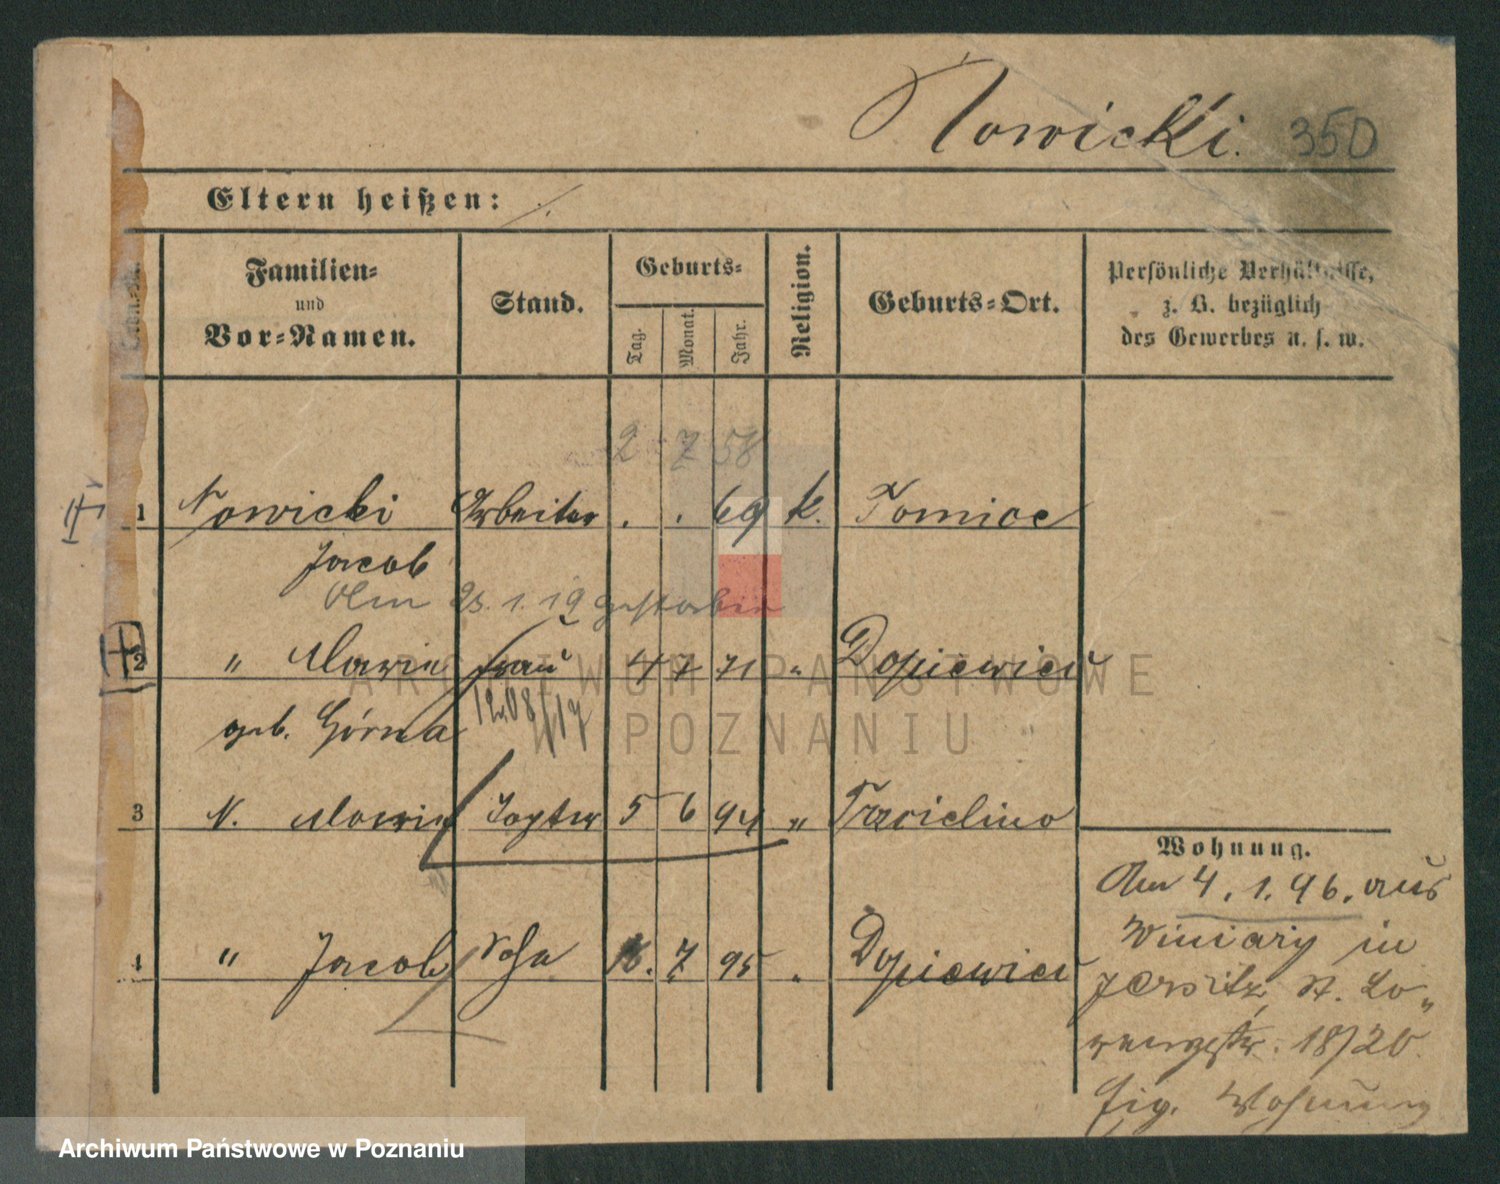 Nowicki. 350
Eltern heißen: ./.
Familien- und Vor-Namen. Stand. Geburts- Tag. Monat. Jahr. Religion. Geburts-Ort. Persönliche Verhältnisse, z. B. bezüglich des Gewerbes u. s. w.
2 7 58
1 Nowicki Arbeiter . . 69 k. Tomice
Jacob
Am 23.1.19 gestorben
2 " Marie Frau 4 7 71 " Dopiewiec
geb. Górna
3 N. Marie Tochter 5 6 94 " Trzcielino
4 " Jacob Sohn 16. 7 95 " Dopiewiec
Wohnung.
Am 4.1.96. aus
Winiary in
Jersitz, St. Lo-
renzstr. 18/20.
Eig. Wohnung
ARCHIWUM PAŃSTWOWE
W POZNANIU
Archiwum Państwowe w Poznaniu